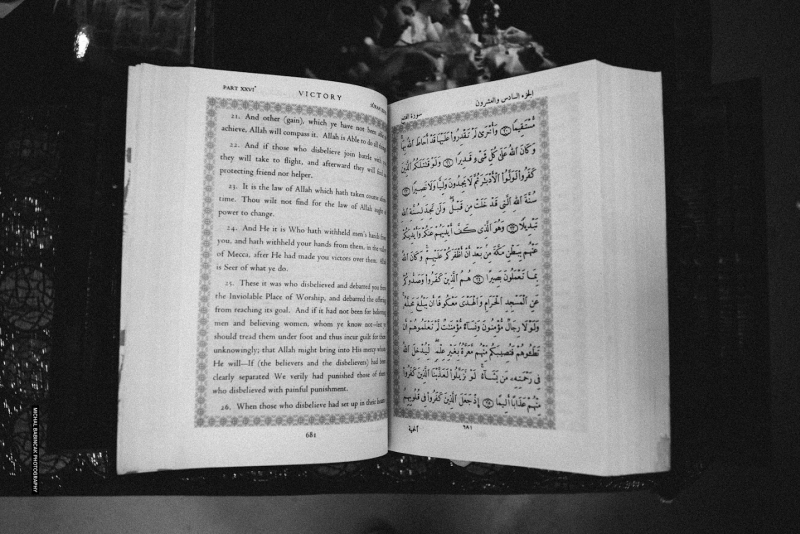 PART XXVI
VICTORY
21. And other (gain), which ye have not been able to
achieve, Allah will compass it. Allah is Able to do all
22. And if those who disbelieve join battle with you
they will take to flight, and afterward they will find no
protecting friend nor helper.
23. It is the law of Allah which hath taken course
time. Thou wilt not find for the law of Allah aught of
power to change.
24. And He it is Who hath withheld men's hands from
you, and hath withheld your hands from them, in the valley
of Mecca, after He had made you victors over them. Allah
is Seer of what ye do.
25. These it was who disbelieved and debarred you from
the Inviolable Place of Worship, and debarred the offering
from reaching its goal. And if it had not been for believing
men and believing women, whom ye know not—lest ye
should tread them under foot and thus incur guilt for them
unknowingly; that Allah might bring into His mercy whom
He will—If (the believers and the disbelievers) had been
clearly separated We verily had punished those of them
who disbelieved with painful punishment.
26. When those who disbelieve had set up in their hearts
681
الجزء السادس والعشرون
سورة الفتح
مُّسْتَقِيمًا ﴿٢٠﴾ وَأُخْرَىٰ لَمْ تَقْدِرُوا عَلَيْهَا قَدْ أَحَاطَ اللَّهُ بِهَا
وَكَانَ اللَّهُ عَلَىٰ كُلِّ شَيْءٍ قَدِيرًا ﴿٢١﴾ وَلَوْ قَاتَلَكُمُ الَّذِينَ
كَفَرُوا لَوَلَّوُا الْأَدْبَارَ ثُمَّ لَا يَجِدُونَ وَلِيًّا وَلَا نَصِيرًا ﴿٢٢﴾
سُنَّةَ اللَّهِ الَّتِي قَدْ خَلَتْ مِن قَبْلُ وَلَن تَجِدَ لِسُنَّةِ اللَّهِ
تَبْدِيلًا ﴿٢٣﴾ وَهُوَ الَّذِي كَفَّ أَيْدِيَهُمْ عَنكُمْ وَأَيْدِيَكُمْ
عَنْهُم بِبَطْنِ مَكَّةَ مِن بَعْدِ أَنْ أَظْفَرَكُمْ عَلَيْهِمْ وَكَانَ اللَّهُ
بِمَا تَعْمَلُونَ بَصِيرًا ﴿٢٤﴾ هُمُ الَّذِينَ كَفَرُوا وَصَدُّوكُمْ
عَنِ الْمَسْجِدِ الْحَرَامِ وَالْهَدْيَ مَعْكُوفًا أَن يَبْلُغَ مَحِلَّهُ
وَلَوْلَا رِجَالٌ مُّؤْمِنُونَ وَنِسَاءٌ مُّؤْمِنَاتٌ لَّمْ تَعْلَمُوهُمْ أَن
تَطَئُوهُمْ فَتُصِيبَكُم مِّنْهُم مَّعَرَّةٌ بِغَيْرِ عِلْمٍ لِّيُدْخِلَ اللَّهُ
فِي رَحْمَتِهِ مَن يَشَاءُ لَوْ تَزَيَّلُوا لَعَذَّبْنَا الَّذِينَ كَفَرُوا
مِنْهُمْ عَذَابًا أَلِيمًا ﴿٢٥﴾ إِذْ جَعَلَ الَّذِينَ كَفَرُوا فِي قُلُوبِهِمُ
٦٨١
MICHAL BABINCAK PHOTOGRAPHY